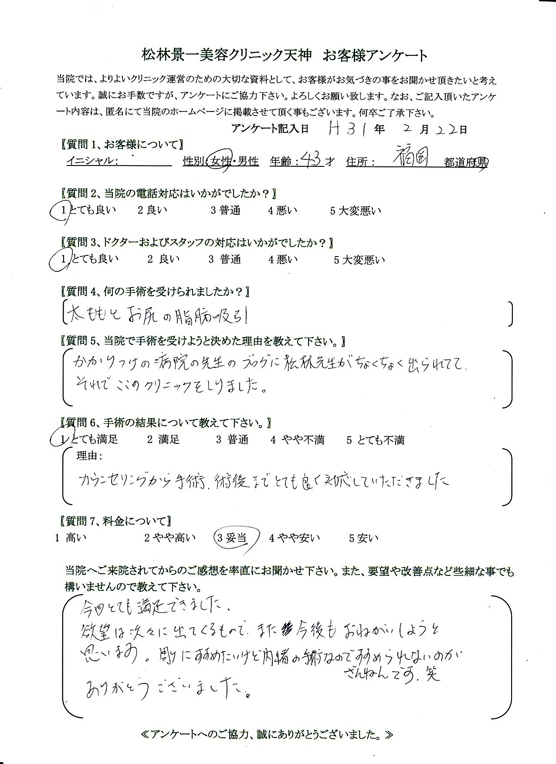 松林景一美容クリニック天神　お客様アンケート
当院では、よりよいクリニック運営のための大切な資料として、お客様がお気づきの事をお聞かせ頂きたいと考え
ています。誠にお手数ですが、アンケートにご協力下さい。よろしくお願い致します。なお、ご記入頂いたアンケ
ート内容は、匿名にて当院のホームページに掲載させて頂く事もございます。何卒ご了承下さい。
アンケート記入日　H31年　2月22日
〖質問1、お客様について〗
イニシャル：　　性別：女性・男性　年齢：43才　住所：　福岡　都道府県
〖質問2、当院の電話対応はいかがでしたか？〗
1とても良い　2良い　3普通　4悪い　5大変悪い
〖質問3、ドクターおよびスタッフの対応はいかがでしたか？〗
1とても良い　2良い　3普通　4悪い　5大変悪い
〖質問4、何の手術を受けられましたか？〗
太ももとお尻の脂肪吸引
〖質問5、当院で手術を受けようと決めた理由を教えて下さい。〗
かかりつけの病院の先生のブログに松林先生がちょくちょく出られてて
それでここのクリニックをしりました。
〖質問6、手術の結果について教えて下さい。〗
1とても満足　2満足　3普通　4やや不満　5とても不満
理由：
カウンセリングから手術、術後までとても良く対応していただきました
〖質問7、料金について〗
1高い　2やや高い　3妥当　4やや安い　5安い
当院へご来院されてからのご感想を率直にお聞かせ下さい。また、要望や改善点など些細な事でも
構いませんので教えて下さい。
今回とても満足できました、
欲望は次々に出てくるもので、また今後もおねがいしようと
思います。周りにすすめたいけど内緒の手術なのですすめられないのが
ざんねんです。笑
ありがとうございました。
≪アンケートへのご協力、誠にありがとうございました。≫